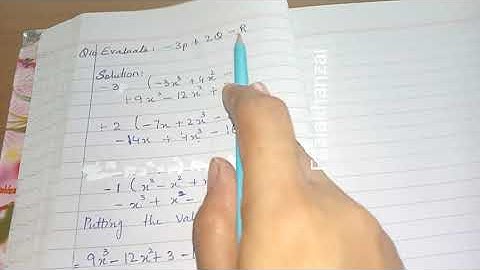 Q10 Evaluate: -3p + 2Q - R
Solution:
-3 (-3x³ + 4x² -
+9x³ - 12x² +
+ 2 (-7x + 2x³ -
-14x + 4x³ - 1
-1 (x³ - x² + x
-x³ + x² -
Putting the Val
= 9x³ - 12x² + 3 -